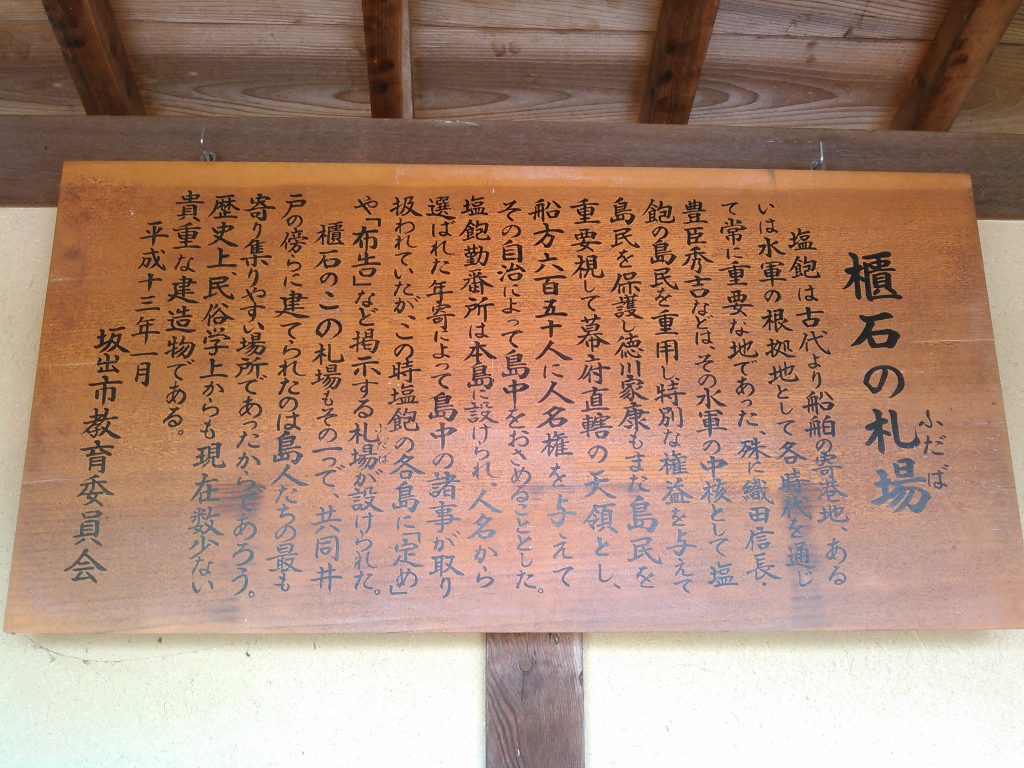 櫃石の札場
ふだば
塩飽は古代より船舶の寄港地、ある
いは水軍の根拠地として各時代を通じ
て常に重要な地であった、殊に織田信長・
豊臣秀吉などは、その水軍の中核として塩
飽の島民を重用し特別な権益を与えて
島民を保護し徳川家康もまた島民を
重要視して幕府直轄の天領とし、
船方六百五十人に人名権を与えて
その自治によって島中をおさめることとした。
塩飽勤番所は本島に設けられ、人名から
選ばれた年寄によって島中の諸事が取り
扱われていたが、この時塩飽の各島に「定め」
や「布告」など掲示する札場が設けられた。
ふだば
櫃石のこの札場もその一つで、共同井
戸の傍らに建てられたのは島人たちの最も
寄り集りやすい場所であったからであろう。
歴史上、民俗学上からも現在数少ない
貴重な建造物である。
平成十三年一月
坂出市教育委員会